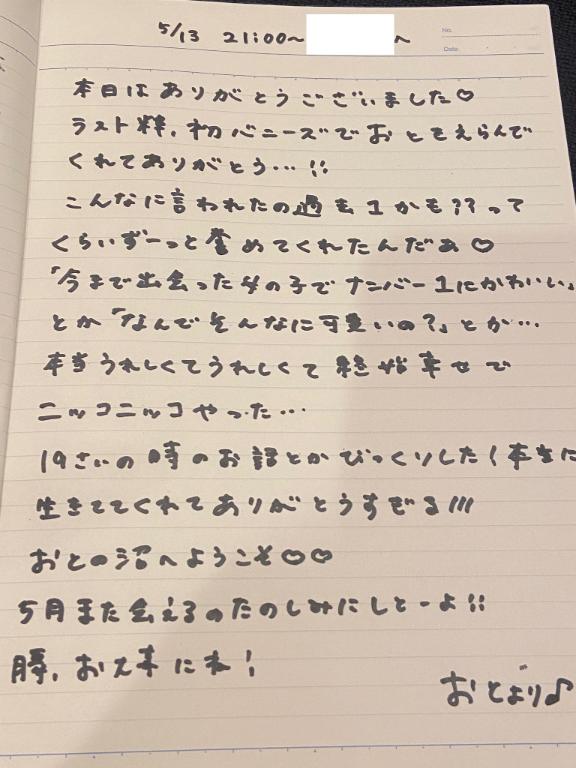 No.
Date
5/13 21:00〜 へ
本日はありがとうございました♡
ラスト枠、初バニーズでおとをえらんで
くれてありがとう…!!
こんなに言われたの過去1かも??って
くらいずーっと誉めてくれたんだぁ♡
「今まで出会った女の子でナンバー1にかわいい」
とか「なんでそんなに可愛いの?」とか…
本当うれしくてうれしくて 幸せで
ニッコニッコやった…
19さいの時のお話とかびっくりした!本当に
生きててくれてありがとうすぎる!!!
おとの沼へようこそ♡♡
5月また会えるのたのしみにしとーよ!!
お大事にね!
おとより♪